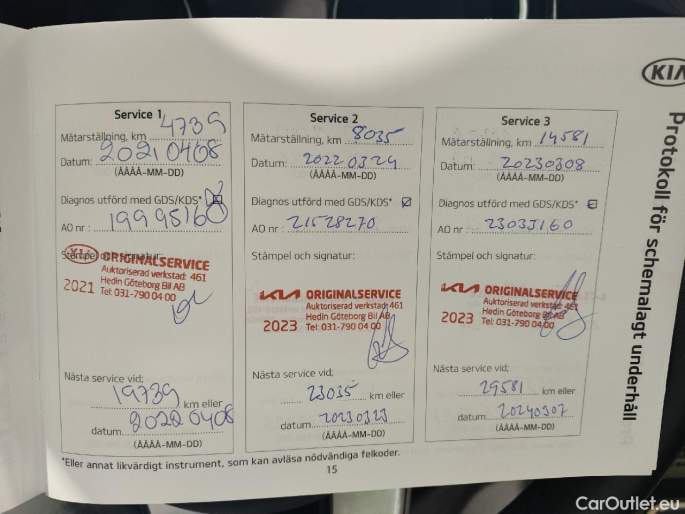 KIA
Protokoll för schemalagt underhåll
Service 1
Mätarställning, km 4739
Datum: 20210408
(ÅÅÅÅ-MM-DD)
Diagnos utförd med GDS/KDS*
AO nr: 19995160
Stämpel och signatur:
KIA ORIGINALSERVICE
Auktoriserad verkstad: 461
Hedin Göteborg Bil AB
2021 Tel: 031-790 04 00
Nästa service vid:
19739 km eller
datum 20220408
(ÅÅÅÅ-MM-DD)
Service 2
Mätarställning, km 8035
Datum: 20220324
(ÅÅÅÅ-MM-DD)
Diagnos utförd med GDS/KDS*
AO nr: 21528270
Stämpel och signatur:
KIA ORIGINALSERVICE
Auktoriserad verkstad: 461
Hedin Göteborg Bil AB
2023 Tel: 031-790 04 00
Nästa service vid:
23035 km eller
datum 20230323
(ÅÅÅÅ-MM-DD)
Service 3
Mätarställning, km 14581
Datum: 20230308
(ÅÅÅÅ-MM-DD)
Diagnos utförd med GDS/KDS*
AO nr:
Stämpel och signatur:
KIA ORIGINALSERVICE
Auktoriserad verkstad: 461
Hedin Göteborg Bil AB
2023 Tel: 031-790 04 00
Nästa service vid:
29581 km eller
datum 20240307
(ÅÅÅÅ-MM-DD)
*Eller annat likvärdigt instrument, som kan avläsa nödvändiga felkoder.
15
CarOutlet.eu